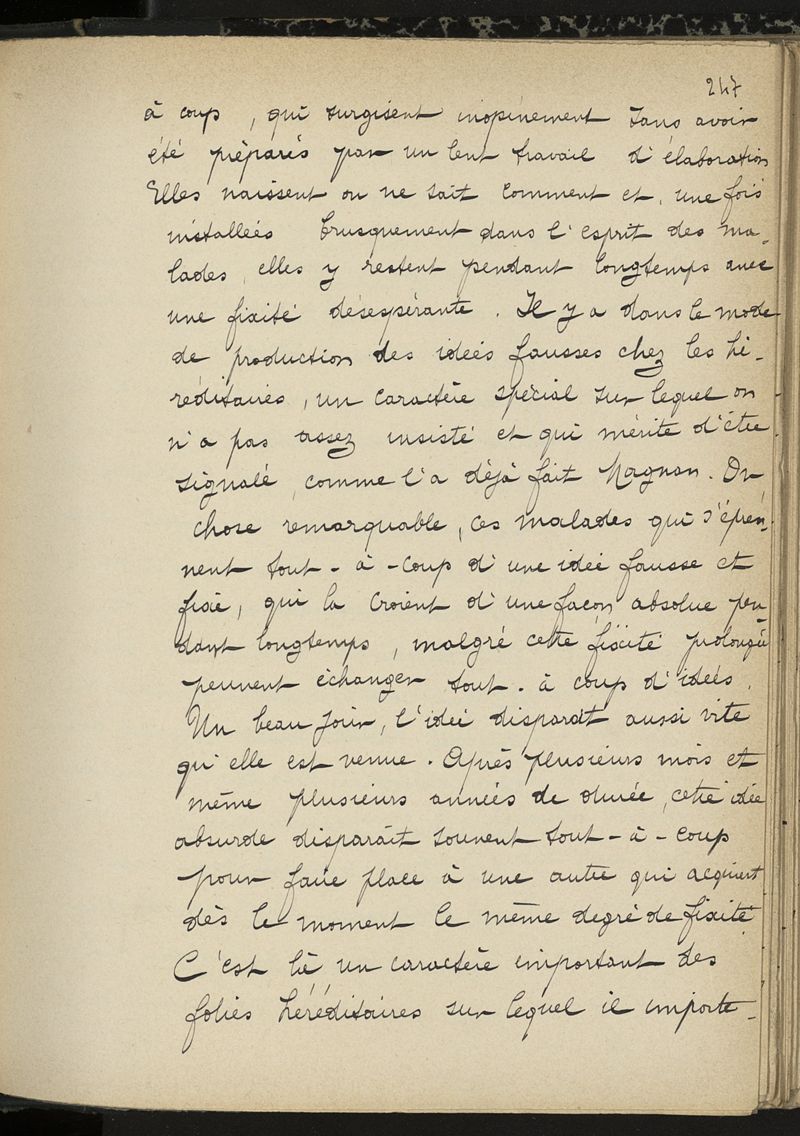 247
à coup, qui surgisent inopinement sans avoir
été préparés par un lent travail d'élaboration
Elles naissent on ne sait comment et, une fois
installées brusquement dans l'esprit des ma-
lades, elles y restent pendant longtemps avec
une fixité désespérante. Il y a dans le mode
de production des idées fausses chez les hé-
réditaires, un caractère spécial sur lequel on
n'a pas assez insisté et qui mérite d'être
signalé, comme l'a déjà fait Magnan. Or
chose remarquable, ces malades qui s'épren-
nent tout-à-coup d'une idée fausse et
fixe, qui la croient d'une façon absolue pen-
dant longtemps, malgré cette fixité prolongée
peuvent échanger tout-à coup d'idées.
Un beau jour, l'idée disparaît aussi vite
qu'elle est venue. Après plusieurs mois et
même plusieurs années de durée, cette idée
absurde disparaît souvent tout-à-coup
pour faire place à une autre qui acquiert
dès le moment le même degré de fixité
C'est là un caractère important des
folies héréditaires sur lequel il importe